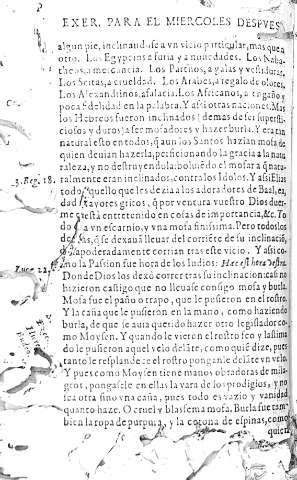 EXER. PARA EL MIERCOLES DESPVES
algun pie, inclinandose a vn vicio particular, mas que a
otro. Los Egypcios a furia y a nouedades. Los Naba-
theos, a mercancia. Los Parthos, a galas y vestiduras.
Los Scitas, a crueldad. Los Arabes, a regalo de olores.
Los Alexandrinos, a falacia. Los Africanos, a engaño y
poca fidelidad en la palabra. Y assi otras naciones. Mas
los Hebreos fueron inclinados (demas de ser supersti-
ciosos y duros) a ser mofadores y hazer burla. Y era tan
natural esto en todos, q̃ aun los Santos hazian mofa de
quien deuian hazerla, perficionando la gracia a la natu
raleza, y no destruyendola: boluiẽdo el mofar a q̃ natu-
3. Reg. 18. ralmente eran inclinados, contra los Idolos. Y assi Elias
todo aquello que les dezia a los adoradores de Baal, ea,
dad mayores gritos, q̃ por ventura vuestro Dios duer-
me està entretenido en cosas de importancia, &c. To
do a vn escarnio, y vna mofa finissima. Pero todos los
q̃ se dexauã lleuar del corriẽte de su inclinaciõ,
apoderadamente corrian tras este vicio. Y assi co-
Luc. 22. mo la Passion fue hora de los Iudios: Hæc est hora vestra.
Donde Dios los dexò correr tras su inclinacion: casi no
hizieron castigo que no lleuasse consigo mofa y burla.
Mofa fue el paño o trapo, que le pusieron en el rostro.
Y la caña que le pusieron en la mano, como haziendo
burla, de que se auia querido hazer otro legislador co-
mo Moysen. Y quando le vieron el rostro feo y lastima
do le pusieron aquel velo delãte, como quiẽ dize, pues
tanto le resplandece el rostro ponganle delãte vn velo.
Y pues como Moysen tiene manos obradoras de mila-
gros, pongasele en ellas la vara de los prodigios, y no
sea otra sino vna caña, pues todo es vazio y vanidad
quanto haze. O cruel y blasfema mofa. Burla fue tam-
bien la ropa de purpura, y la corona de espinas, como
quien